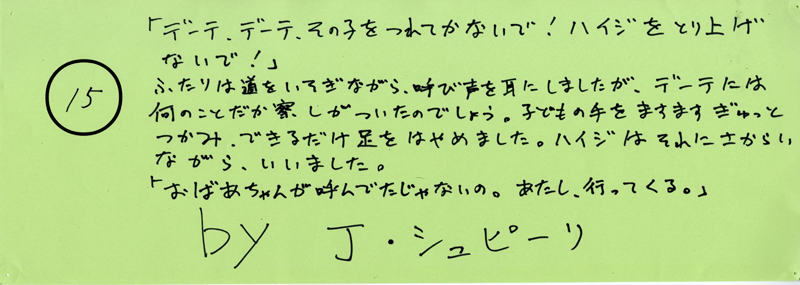 「デーテ、デーテ、その子をつれてかないで！ハイジをとり上げ
ないで！」
ふたりは道をいそぎながら、呼び声を耳にしましたが、デーテには
15
何のことだか察しがついたのでしょう。子どもの手をますますぎゅっと
つかみ、できるだけ足をはやめました。ハイジはそれにさからい
ながら、いいました。
「おばあちゃんが呼んでたじゃないの。あたし、行ってくる。」
by J・シュピーリ